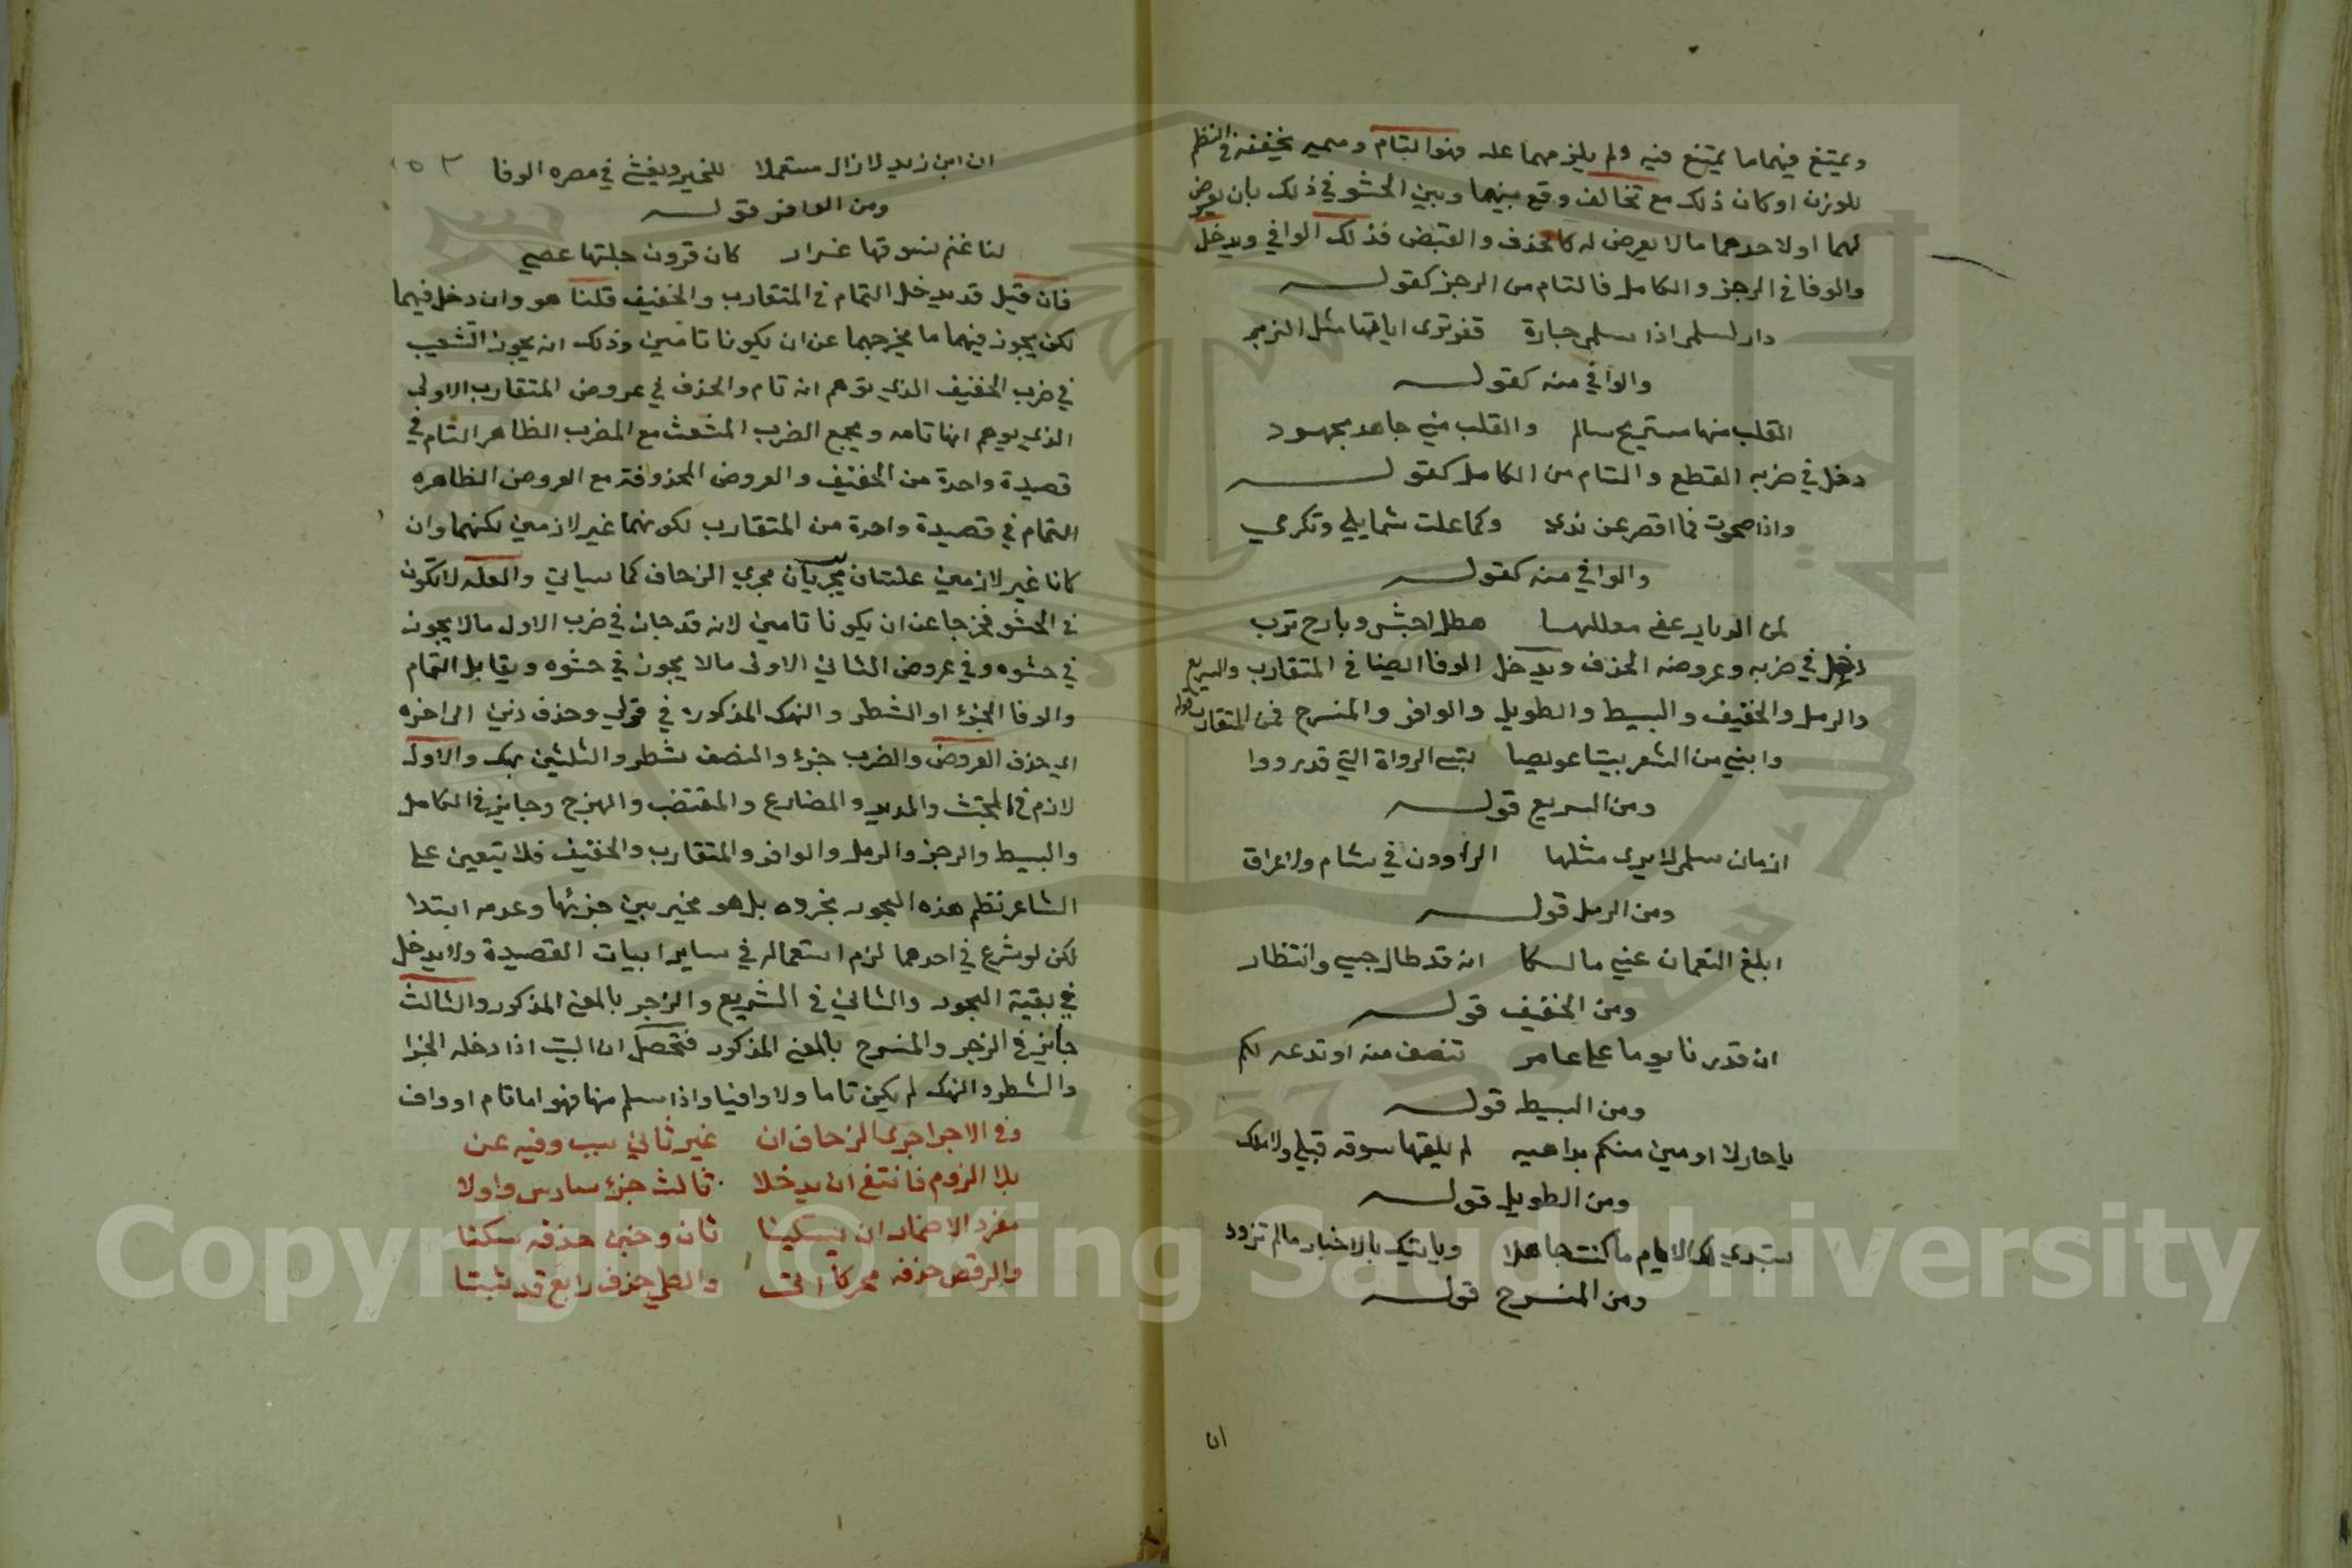 ويمتنع فيهما ما يمتنع فيه ولم يلزمهما علة فهو التام وصير تخفيفه في النظم
للوزن او كان ذلك مع تخالف وقع بينهما وبين الحشو في ذلك بان يعرض
لهما او لاحدهما ما لا يعرض له كالحذف والقبض فذلك الوافي ويدخل
والوفا في الرجز والكامل فالتام من الرجز كقوله
دار لسلمى اذا سلمى جارة قفر ترى اياتها مثل الزبر
والوافي منه كقوله
القلب منها مستريح سالم والقلب مني جاهد مجهود
دخل في ضربه القطع والتام من الكامل كقوله
واذا صحوت فما اقصر عن ندى وكما علت شمايلي وتكرمي
والوافي منه كقوله
لمن الديار عفى معالمها هطل اجش وبارح ترب
دخل في ضربه وعروضه الحذف ويدخل الوفا ايضا في المتقارب والسريع
والرمل والخفيف والبسيط والطويل والوافر والمنسرح فمن المتقارب قوله
وابني من الشعر بيتا عويصا ينسي الرواة التي قد رووا
ومن السريع قوله
ازمان سلمى لا يرى مثلها الراوون في شام ولا عراق
ومن الرمل قوله
ابلغ النعمان عني مالكا انه قد طال حبسي وانتظار
ومن الخفيف قوله
ان قدرنا يوما على عامر ننصف منه او ندعه لكم
ومن البسيط قوله
يا حار لا ارمين منكم بداهيه لم يلقها سوقه قبلي ولا ملك
ومن الطويل قوله
ستبدي لك الايام ما كنت جاهلا وياتيك بالاخبار ما لم تزود
ومن المنسرح قوله
ان
ان ابن زيد لا زال مستعملا للخير ويفشي في مصره الوفا
ومن الوافر قوله
لنا غنم نسوقها غزار كان قرون جلتها عصي
فان قيل قد يدخل التمام في المتقارب والخفيف قلنا هو وان دخل فيهما
لكن يجوز فيهما ما يخرجهما عن ان يكونا تامين وذلك انه يجوز التشعيب
في ضرب الخفيف الذي توهم انه تام والحذف في عروض المتقارب الاولى
الذي يوهم انها تامه ويجمع الضرب المشعث مع الضرب الظاهر التام في
قصيدة واحدة من الخفيف والعروض المحذوفة مع العروض الظاهره
التمام في قصيدة واحدة من المتقارب لكونهما غير لازمين لكنهما وان
كانا غير لازمين علتان يجريان مجرى الزحاف كما سياتي والعله لا تكون
في الحشو فخرجا عن ان يكونا تامين لانه قد جاز في ضرب الاول ما لا يجوز
في حشوه وفي عروض الثاني الاولى ما لا يجوز في حشوه ويقابل التمام
والوفا الجزء او الشطر والنهك المذكوره في قولي وحذف ذين الى اخره
اي حذف العروض والضرب جزء والنصف شطر والثلثين نهك والاول
لازم في المجتث والمديد والمضارع والمقتضب والهزج وجايز في الكامل
والبسيط والرجز والرمل والوافر والمتقارب والخفيف فلا يتعين على
الشاعر نظم هذه البحور مجزوه بل هو مخير بين جزئها وعدمه ابتدا
لكن لو شرع في احدهما لزم استعماله في ساير ابيات القصيدة ولا يدخل
في بقية البحور والثاني في الشريع والزجر بالمعنى المذكور والثالث
جايز في الزجر والمنسرح بالمعنى المذكور فتحصل ان البيت اذا دخله الجزا
والشطر والنهك لم يكن تاما ولا وافيا واذا سلم منها فهو اما تام او واف
وفي الاجرا اجرى الزحاف ان غير ثاني سبب وفيه عن
بلا الزوم فانتفى ان يدخلا ثالث جزء سادس واولا
مفرد الاضمار ان يسكينا ثان وخبن حذفه سكنا
والوقص حذفه محركا اتى والطي حذف رابع قد ثبتا
Copyright © King Saud University
1957